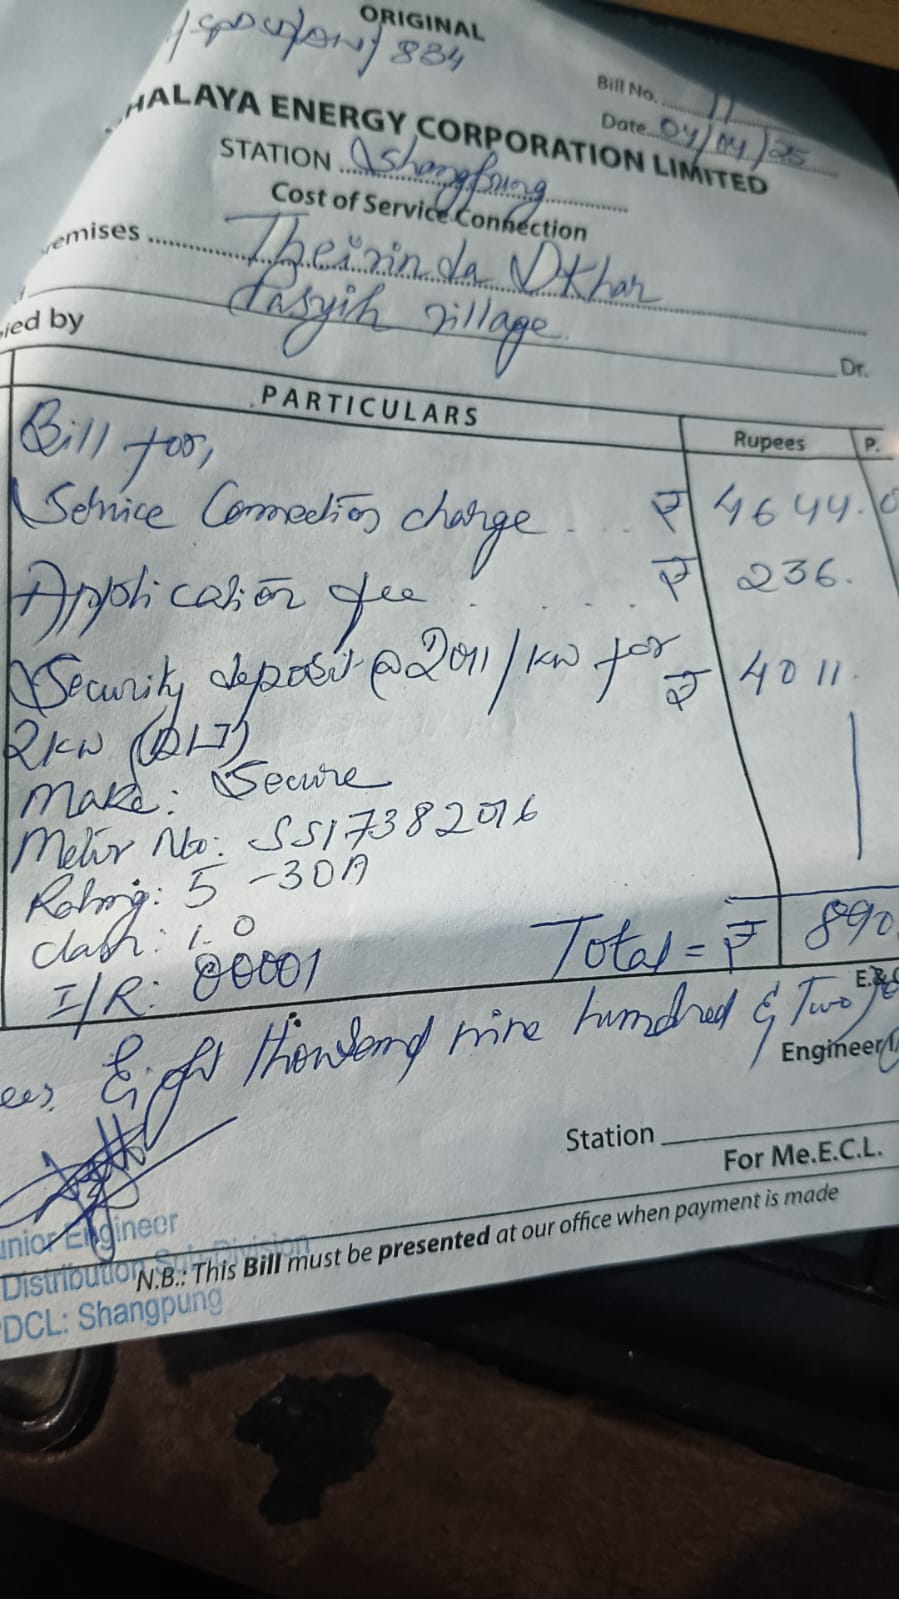 ORIGINAL
/884
Bill No. 11
HALAYA ENERGY CORPORATION LIMITED
Date 04/04/25
STATION Shangpung
Cost of Service Connection
emises Theirinda Dkhar
Pasyih village
ied by
Dr.
PARTICULARS
Rupees P.
Bill for,
Service Connection charge .... ₹ 4644.0
Application fee ..... ₹ 236.
Security deposit @ 2011/kw for ₹ 4011.
2kw (DLT)
Make: Secure
Metir No: SS17382016
Rating: 5 -30A
Class: 1.0
I/R: 00001
Total = ₹ 890
E.&O
ees. Eight thousand nine hundred & Two
Engineer
Station
For Me.E.C.L.
unior Engineer
Distribution Sub-Division
N.B.: This Bill must be presented at our office when payment is made
DCL: Shangpung